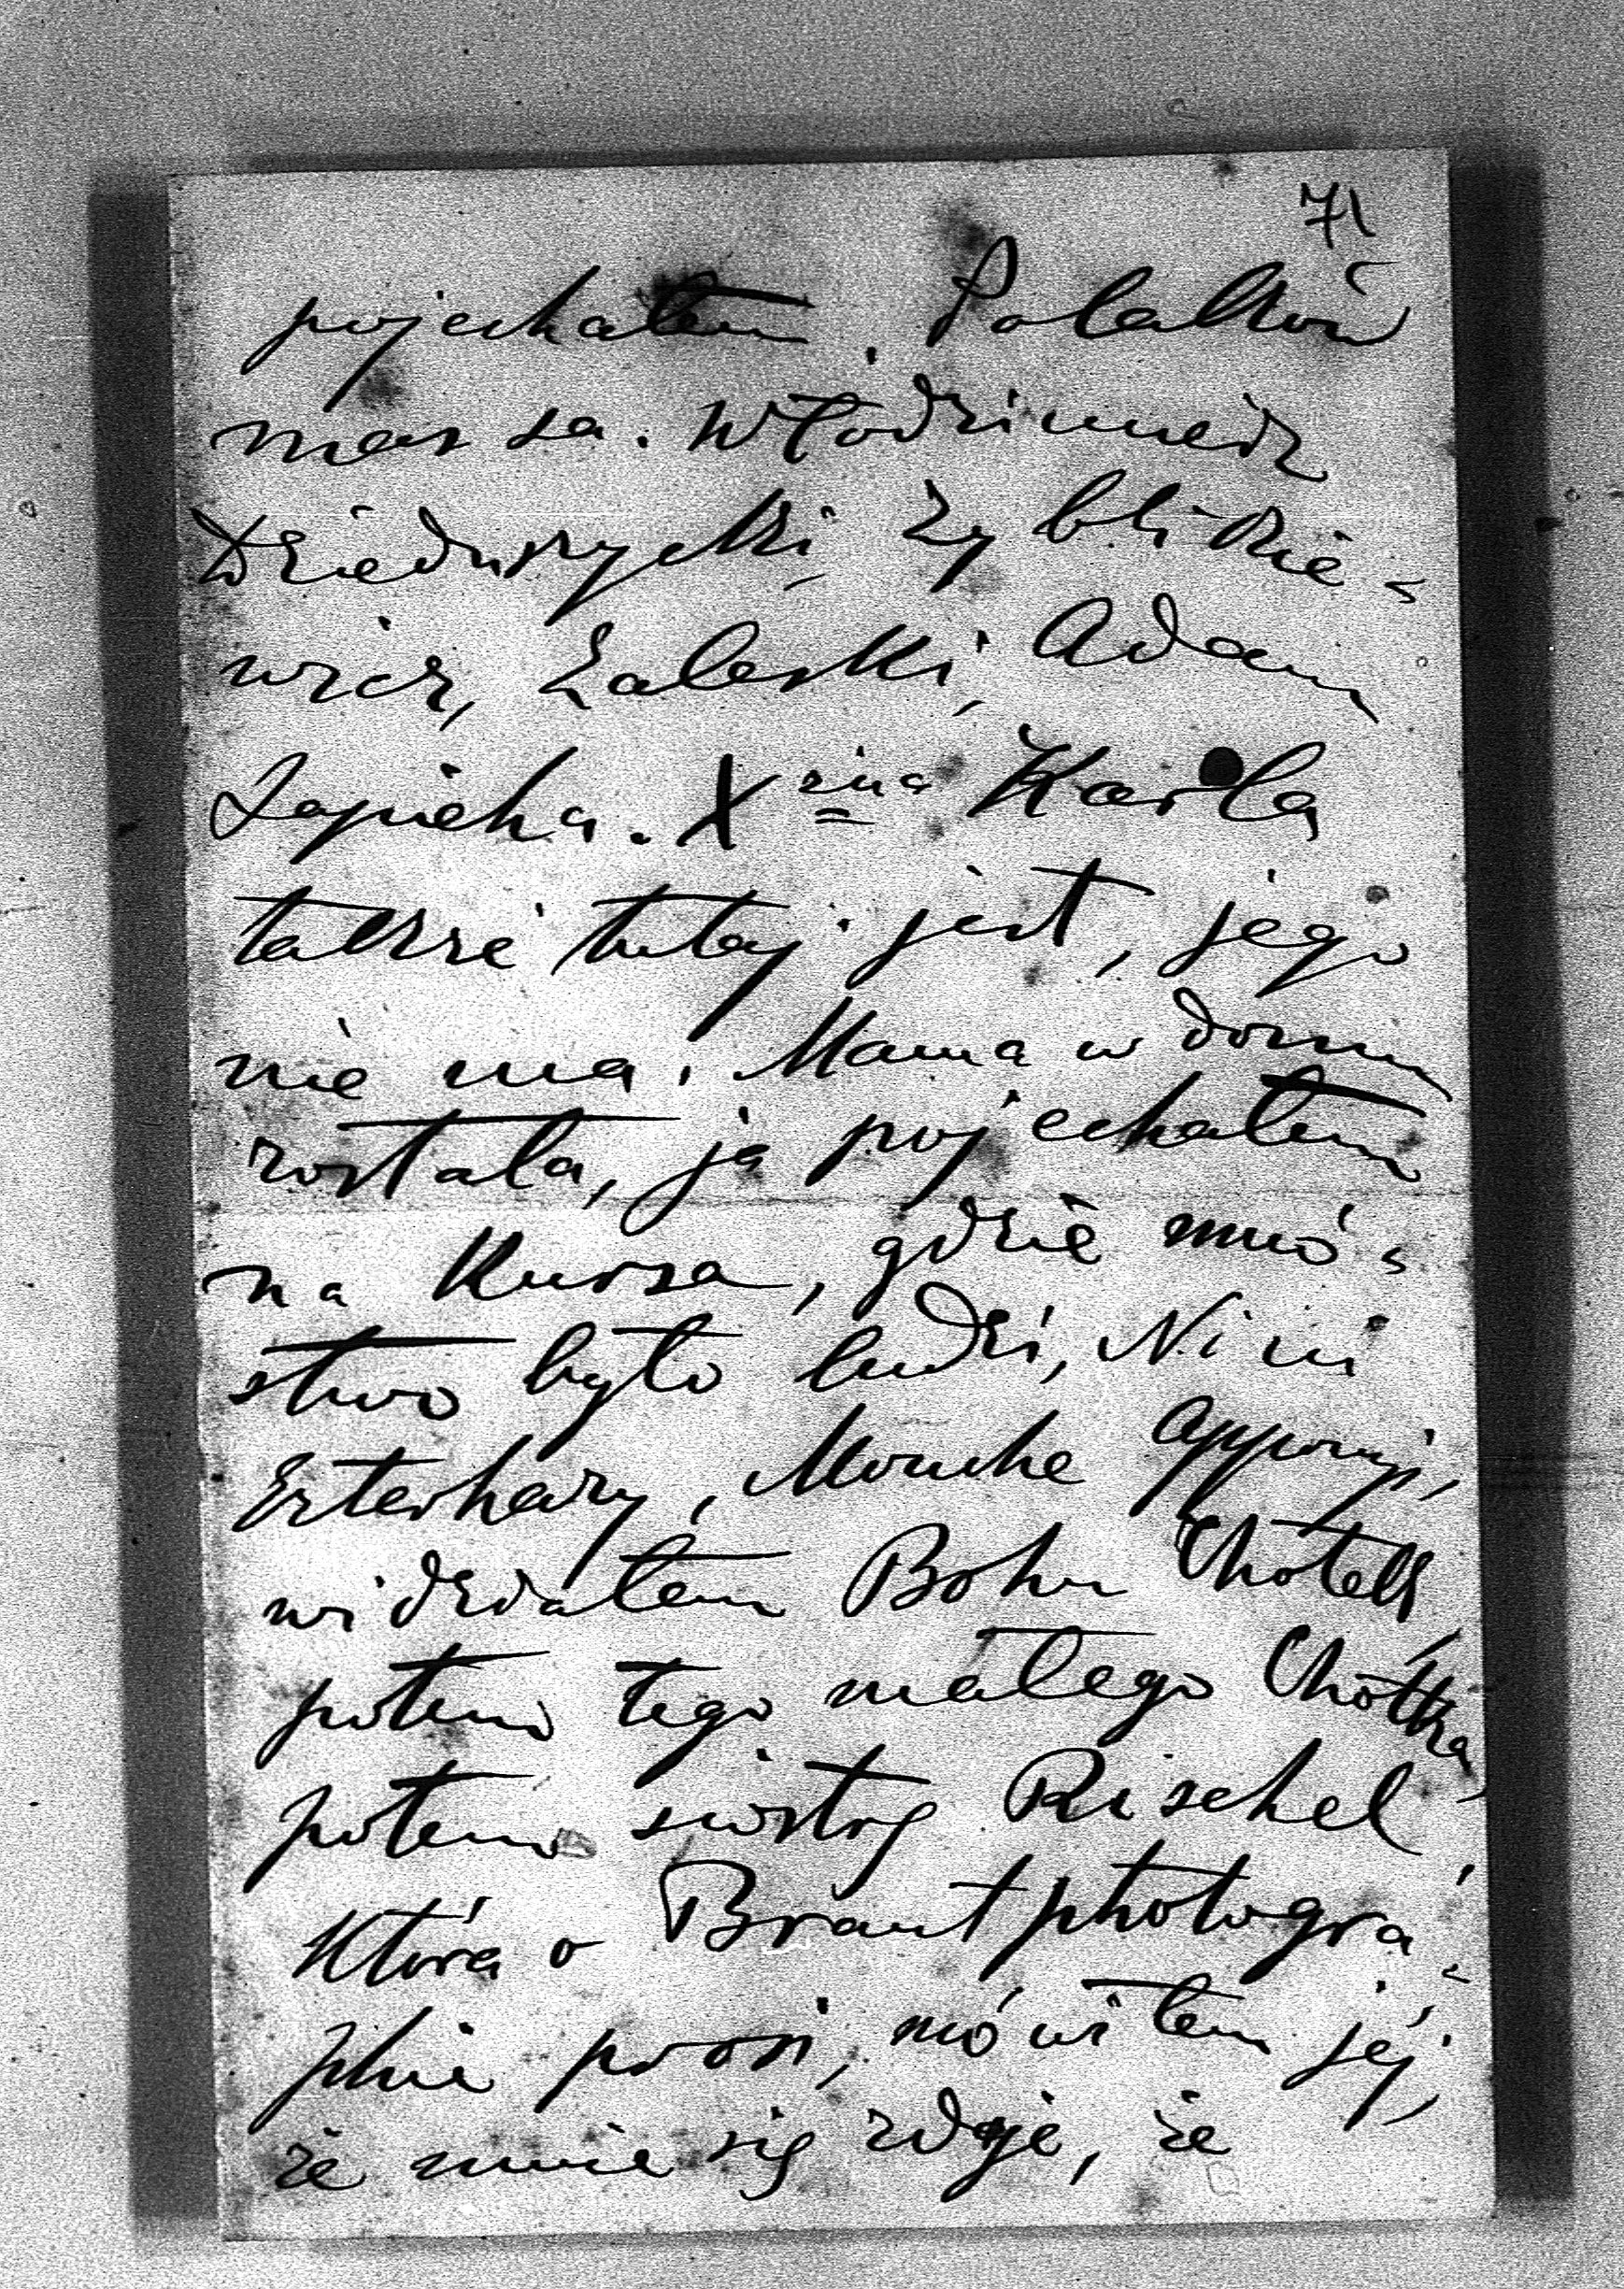 71
pojechałem. Polaków
massa. Włodzimierz
Dzieduszycki, Zyblikie-
wicz, Zaleski, Adam
Sapieha. Xżna Karla
także tutaj jest, jego
nie ma. Mama w domu
została, ja pojechałem
na Kursa, gdzie mnó-
stwo było ludzi, Nini
Esterhazy, Mouche Appony,
widziałem Bohu Chotek
potem tego małego Chotka,
potem siostrę Rischel
która o Braut photogra-
phie prosi, mówiłem jéj,
że mnie się zdaje, że